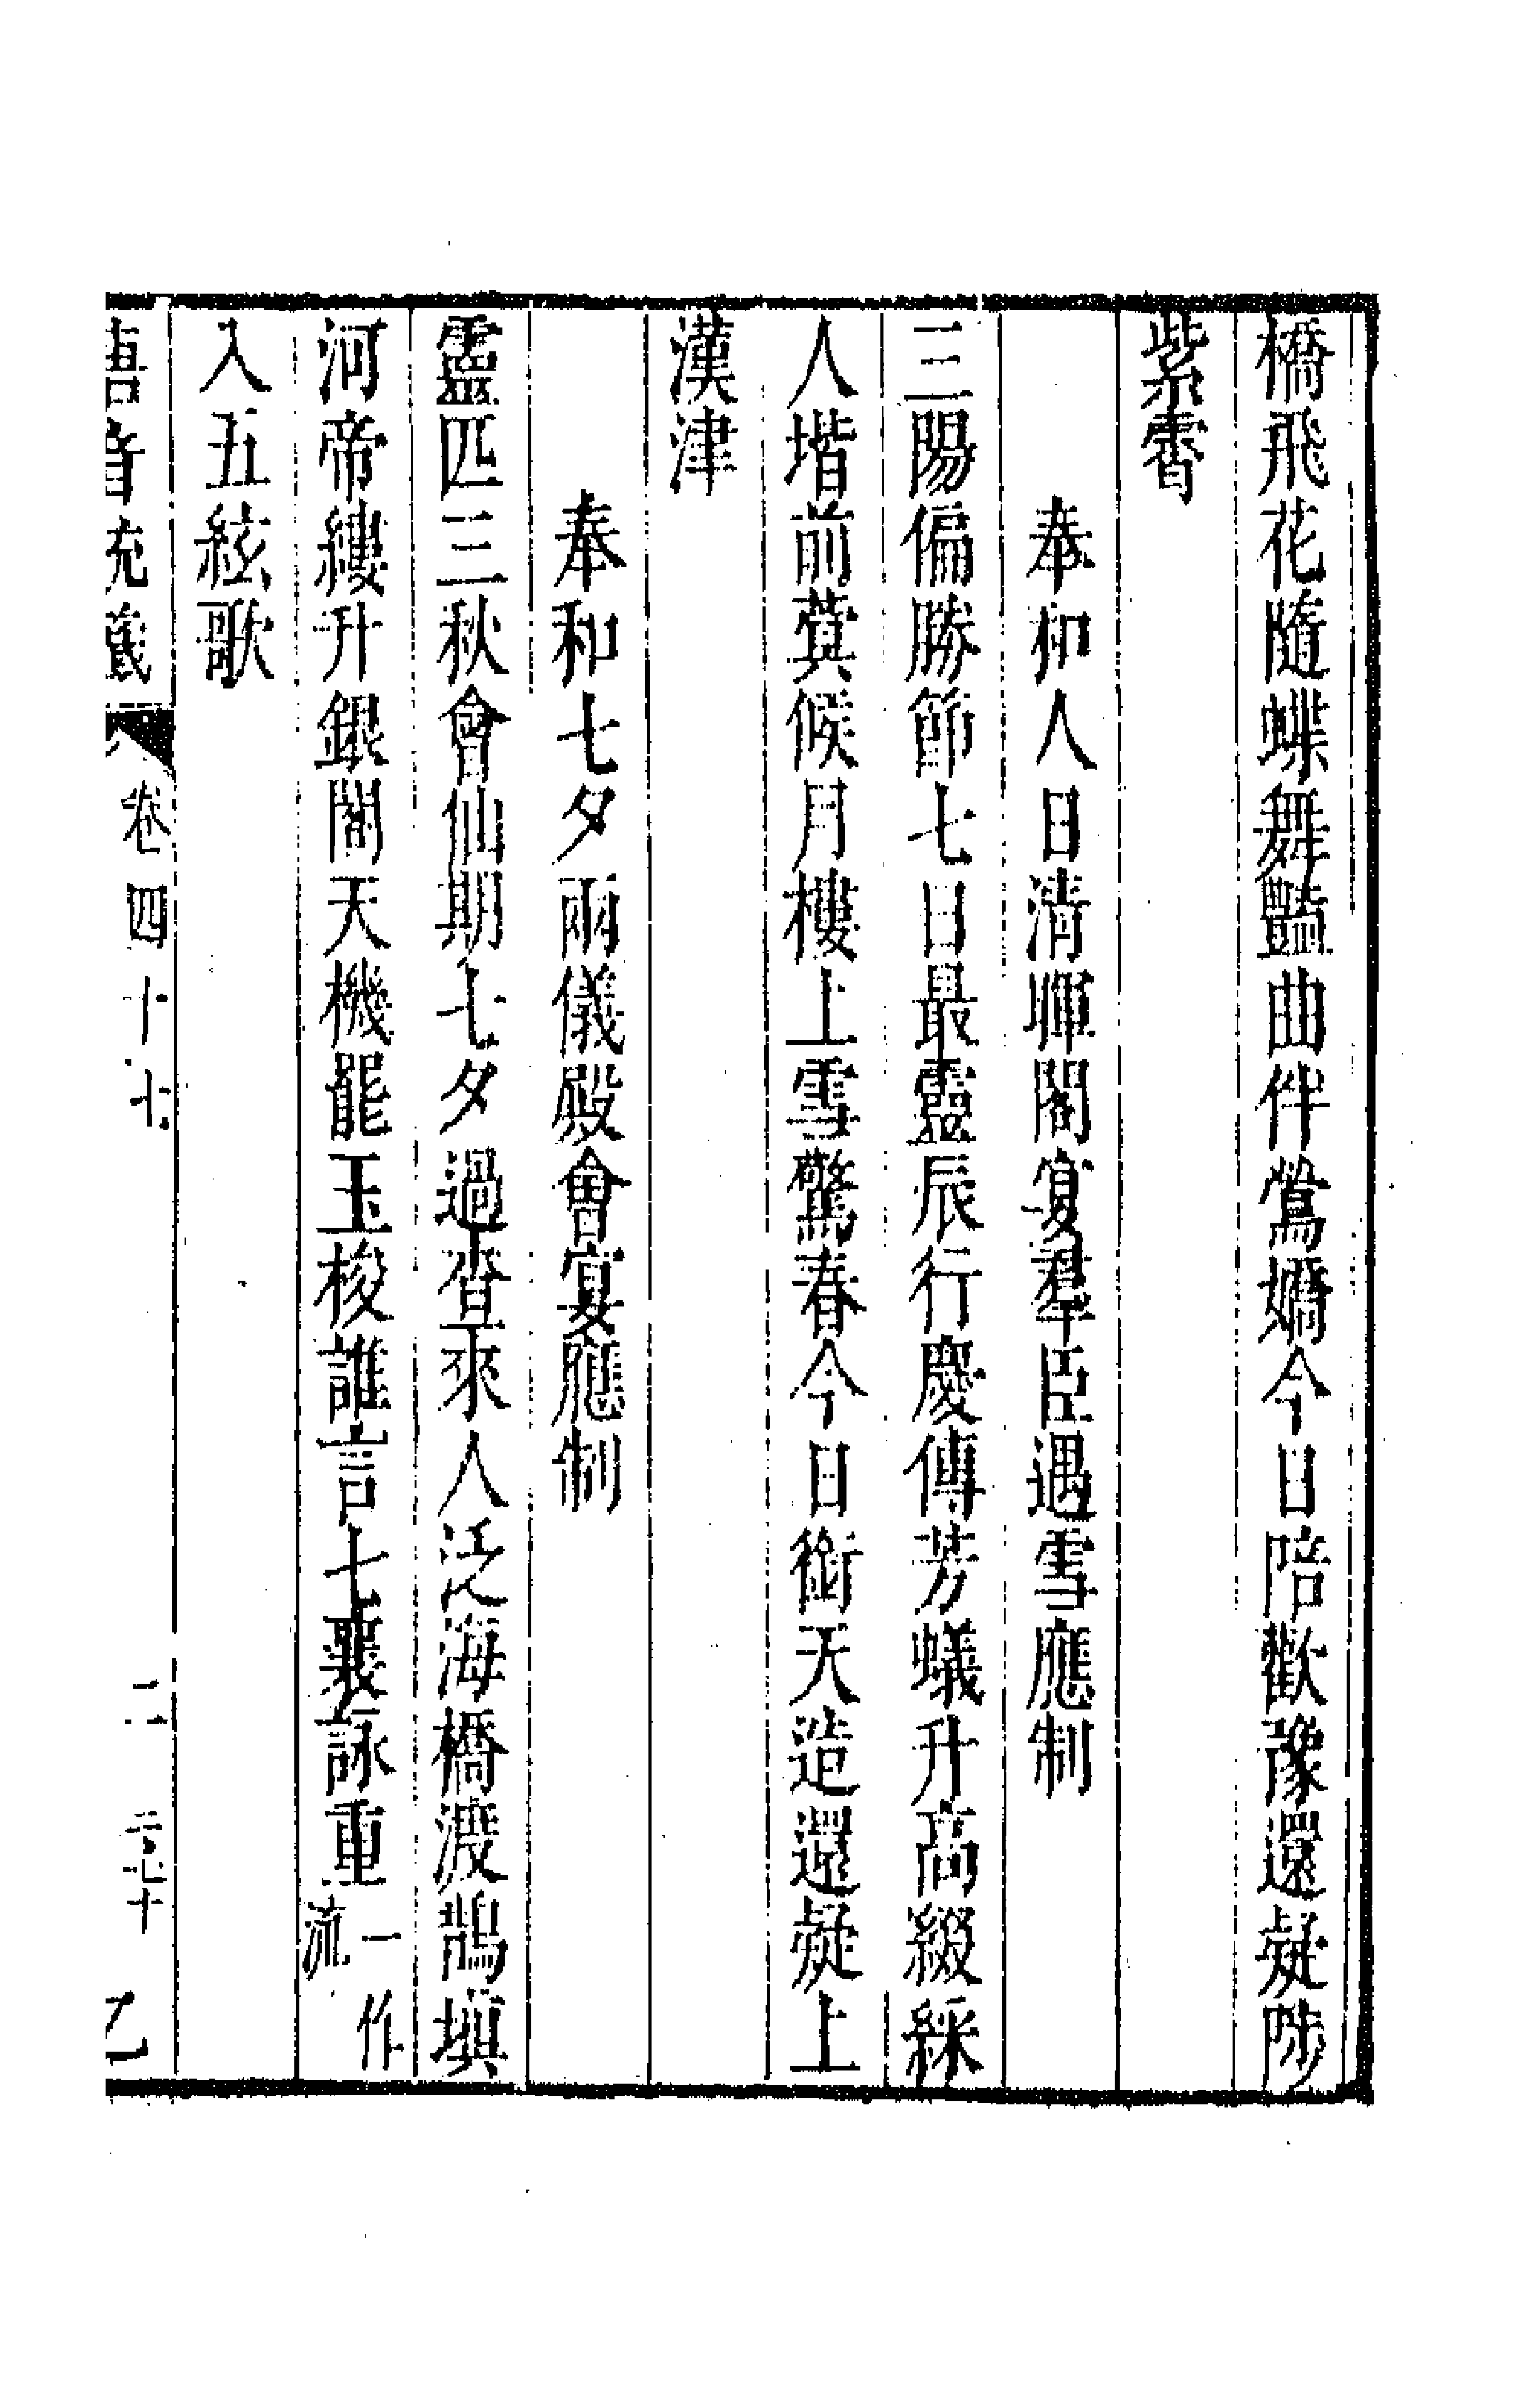 橋飛花隨蝶舞豔曲伴鶯嬌今日陪歡豫還疑陟
紫霄
奉和人日清暉閣宴羣臣遇雪應制
三陽偏勝節七日最靈辰行慶傳芳蟻升高綴綵
人堦前蓂候月樓上雪驚春今日銜天造還疑上
漢津
奉和七夕兩儀殿會宴應制
靈匹三秋會仙期七夕過查來人泛海橋渡鵲塡
河帝縷升銀閣天機罷玉梭誰言七襄詠重一作流
入五絃歌
唐音統籖 卷四十七 二 乙